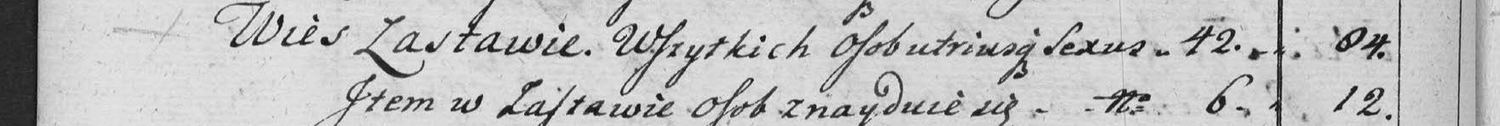 Wies Zastawie. Wszytkich Osob utriusq; Sexus. 42. 84.
Jtem w Zastawie Osob znayduie się - No 6. 12.